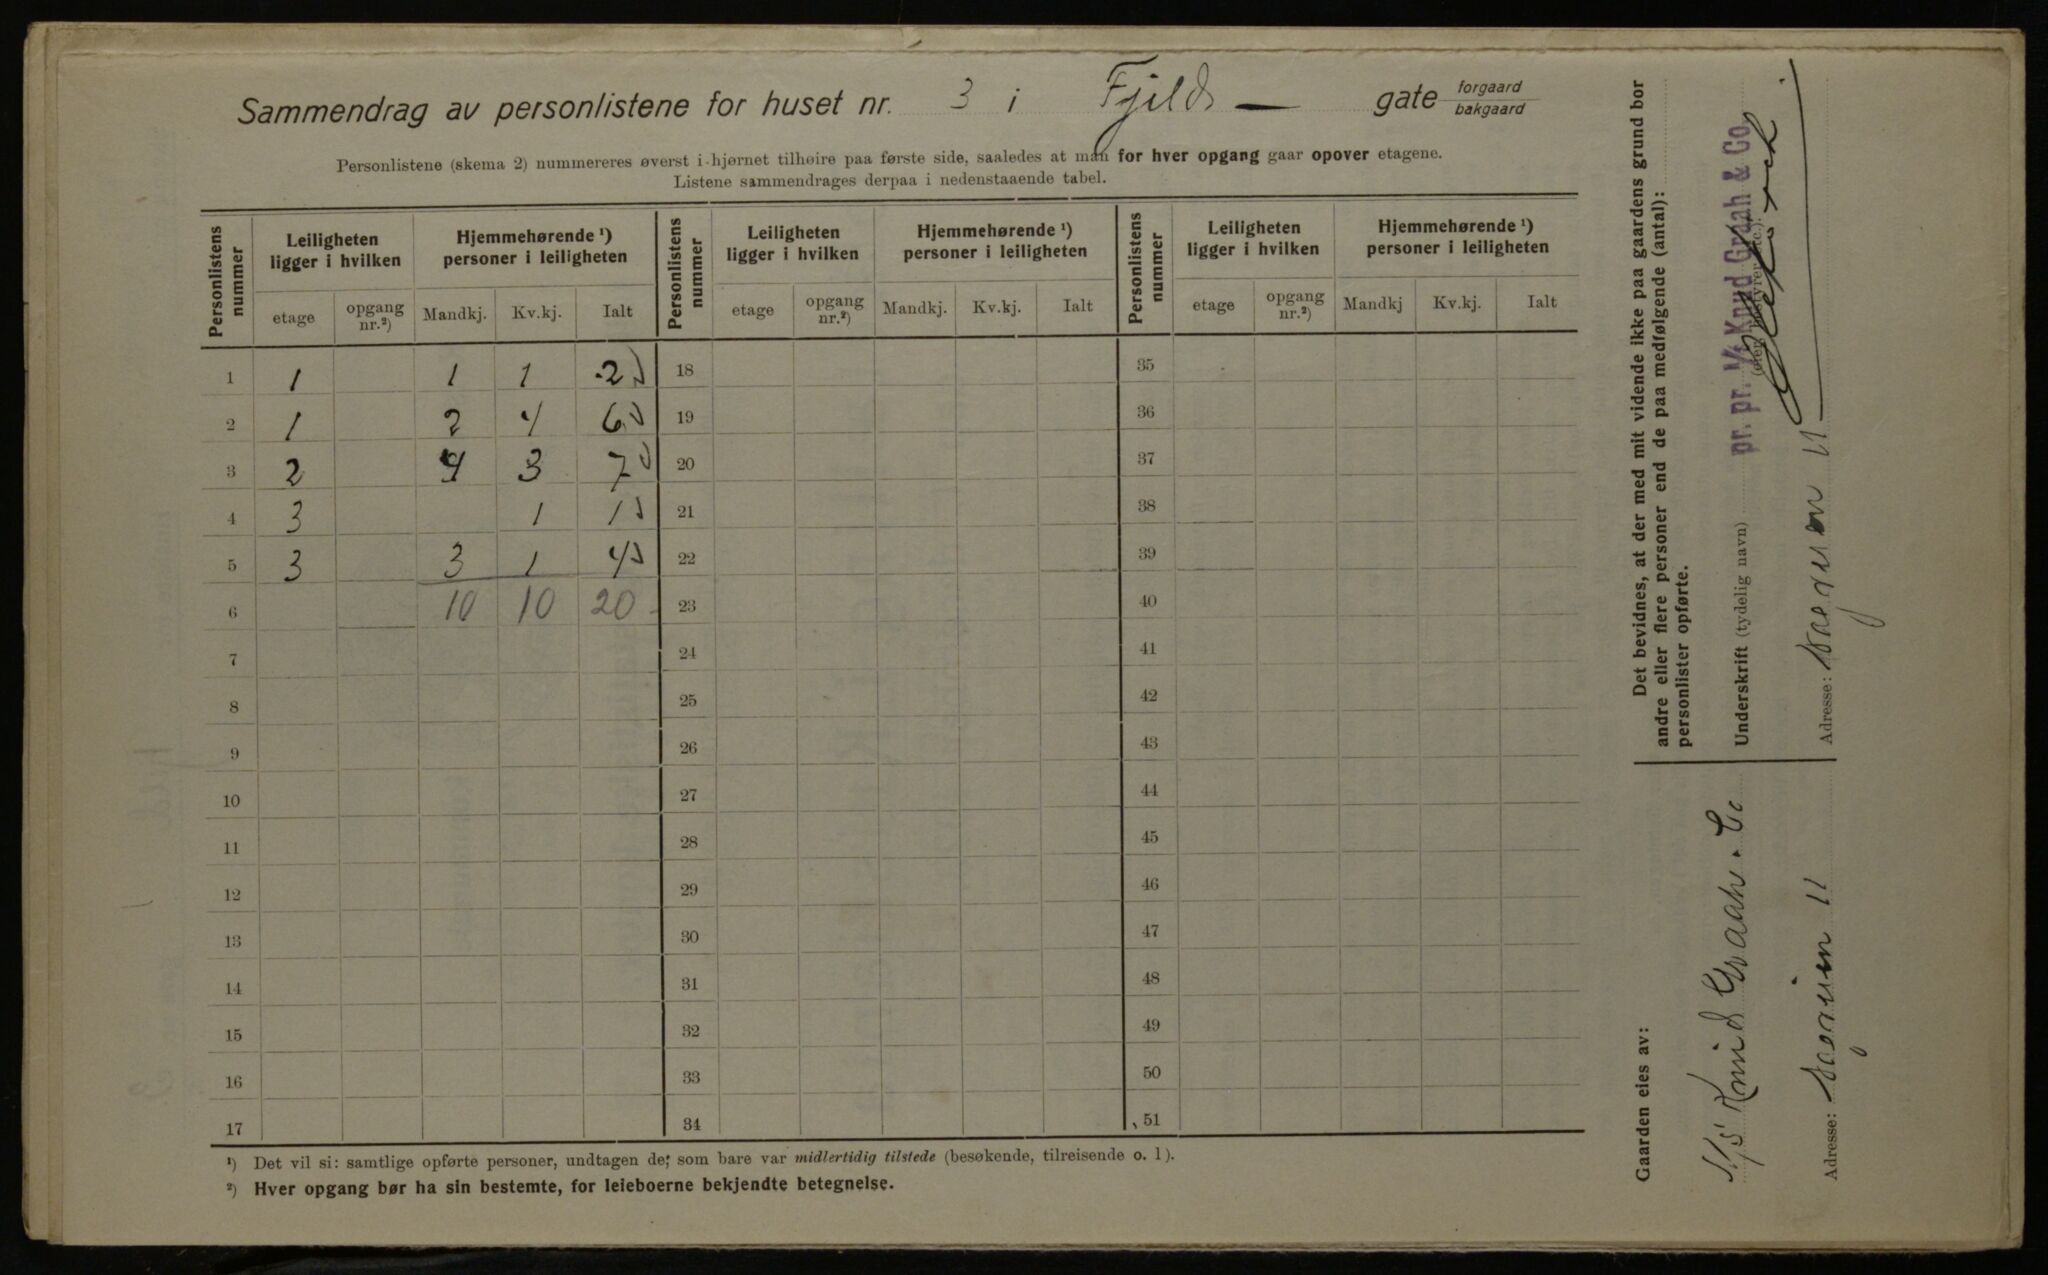 Sammendrag av personlistene for huset nr. 3 i Fjeld — gate forgaard bakgaard
Personlistene (skema 2) nummereres øverst i hjørnet tilhøire paa første side, saaledes at man for hver opgang gaar opover etagene.
Listene sammendrages derpaa i nedenstaaende tabel.
Personlistens nummer | Leiligheten ligger i hvilken | Hjemmehørende ¹) personer i leiligheten | Personlistens nummer | Leiligheten ligger i hvilken | Hjemmehørende ¹) personer i leiligheten | Personlistens nummer | Leiligheten ligger i hvilken | Hjemmehørende ¹) personer i leiligheten
etage | opgang nr.²) | Mandkj. | Kv.kj. | Ialt | etage | opgang nr.²) | Mandkj. | Kv.kj. | Ialt | etage | opgang nr.²) | Mandkj | Kv.kj. | Ialt
1 | 1 | 1 | 1 | 2 | 18 | 35
2 | 1 | 2 | 4 | 6 | 19 | 36
3 | 2 | 4 | 3 | 7 | 20 | 37
4 | 3 | 1 | 1 | 21 | 38
5 | 3 | 3 | 1 | 4 | 22 | 39
6 | 10 | 10 | 20 | 23 | 40
7 | 24 | 41
8 | 25 | 42
9 | 26 | 43
10 | 27 | 44
11 | 28 | 45
12 | 29 | 46
13 | 30 | 47
14 | 31 | 48
15 | 32 | 49
16 | 33 | 50
17 | 34 | 51
¹) Det vil si: samtlige opførte personer, undtagen de, som bare var midlertidig tilstede (besøkende, tilreisende o. l).
²) Hver opgang bør ha sin bestemte, for leieboerne bekjendte betegnelse.
Det bevidnes, at der med mit vidende ikke paa gaardens grund bor
andre eller flere personer end de paa medfølgende (antal):
personlister opførte.
Underskrift (tydelig navn) pr. pr. A/S Knud Graah & Co.
(eier, bestyrer etc.).
Adresse: 11
Gaarden eies av:
A/S Knud Graah & Co
Adresse: 11